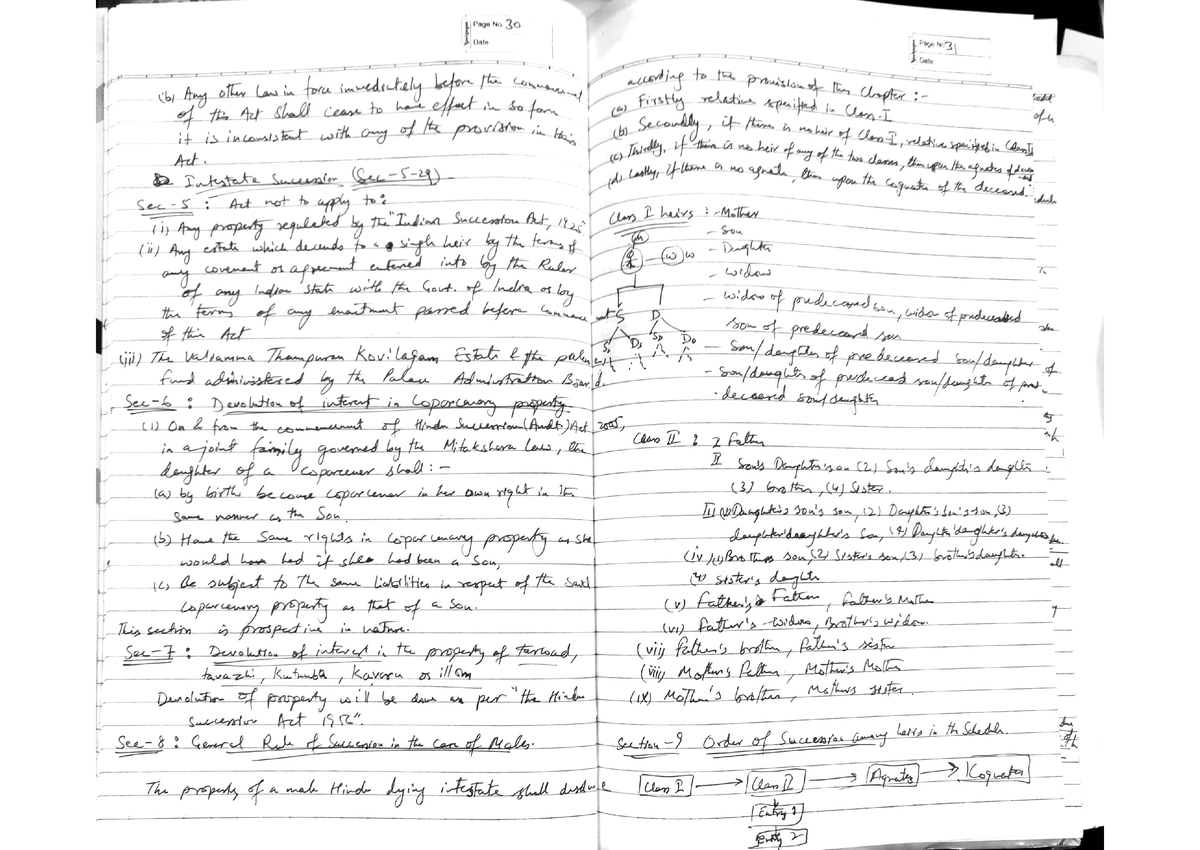 Page No. 30
Date
(b) Any other law in force immediately before the commencement
of this Act shall cease to have effect in so far
it is inconsistent with any of the provision in this
Act.
Intestate Succession (Sec-5-29)
Sec-5 : Act not to apply to:
(i) Any property regulated by the "Indian Succession Act, 1925"
(ii) Any estate which decends to a single heir by the terms of
any covenant or agreement entered into by the Ruler
of any Indian State with the Govt. of India or by
the terms of any enactment passed before commencement
of this Act
(iii) The Valiamma Thampuran Kovilagam Estate & the palace
fund administered by the Palace Administration Board.
Sec-6 : Devolution of interest in Coparcenary property
(1) On & from the commencement of Hindu Succession (Amdt.) Act 2005,
in a joint family governed by the Mitakshara Law, the
daughter of a coparcener shall :-
(a) by birth become coparcener in her own right in the
same manner as the Son.
(b) Have the same rights in coparcenary property as she
would have had if she had been a Son,
(c) Be subject to the same liabilities in respect of the said
coparcenary property as that of a Son.
This section is prospective in nature.
Sec-7 : Devolution of interest in the property of tarwad,
tavazhi, Kutumba, Kavaru or illom
Devolution of property will be done as per "the Hindu
Succession Act 1956".
Sec-8 : General Rule of Succession in the case of Males.
The property of a male Hindu dying intestate shall devolve
Page No. 31
Date
according to the provision of this Chapter :-
(a) Firstly relative specified in Class-I
(b) Secondly, if there is no heir of Class-I, relative specified in Class II
(c) Thirdly, if there is no heir of any of the two classes, then upon the agnates of deceased
(d) Lastly, if there is no agnate, then upon the cognates of the deceased
Class I heirs : - Mother
- Son
- Daughter
- widow
W
S D
- widow of predeceased son, widow of predeceased
son of predeceased son
- Son/daughter of predeceased son/daughter of
- Son/daughter of predeceased son/daughter of pre
deceased son/daughter
Class II : I Father
II Son's Daughter's son (2) Son's daughter's daughter
(3) brother, (4) Sister.
III (1) Daughter's son's son, (2) Daughter's son's son, (3)
daughter's daughter's son, (4) Daughter's daughter's daughter
(iv) (1) Brothers son, (2) Sister's son, (3) brother's daughter.
(4) Sister's daughter
(v) Father's Father, Father's Mother
(vi) Father's Widow, Brother's widow.
(vii) Father's brother, Father's sister
(viii) Mother's Father, Mother's Mother
(ix) Mother's brother, Mothers sister.
Section-9 Order of Succession among heirs in the Schedule.
Class I → Class II → Agnates → Cognates
Entry 1
Entry 2